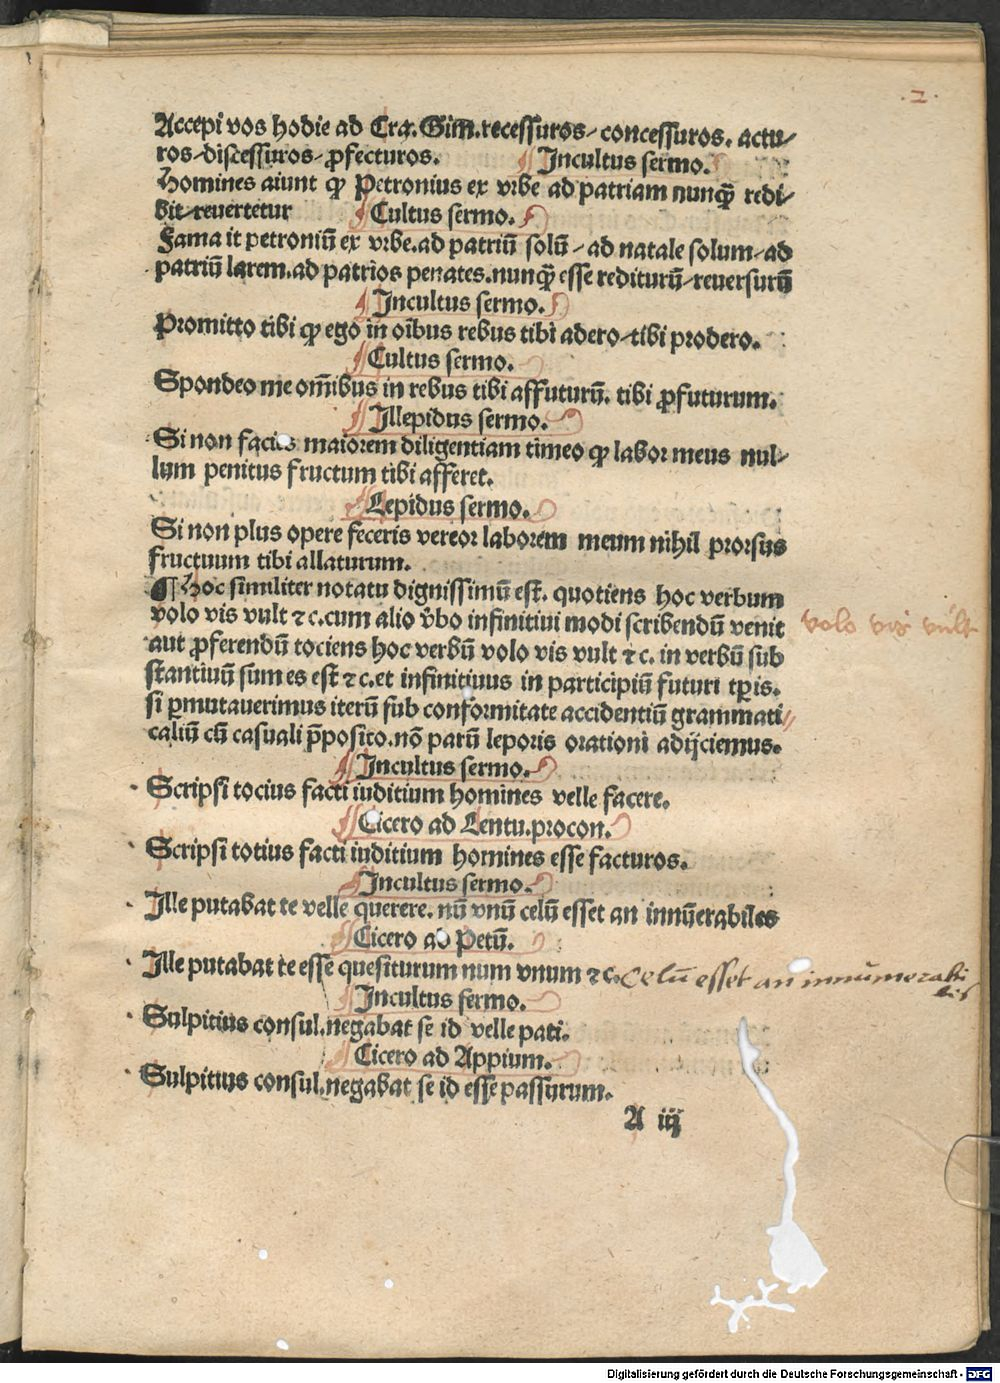 .2.
Accepi vos hodie ad Crą. Gim. recessuros/ concessuros. actu/
ros/ discessuros/ ꝓfecturos. Incultus sermo.
Homines aiunt ꝙ Petronius ex vrbe ad patriam nunq̃ redi/
bit/ reuertetur Cultus sermo.
Fama it petroniũ ex vrbe. ad patriũ solũ/ ad natale solum/ ad
patriũ larem. ad patrios penates. nunq̃ esse rediturũ/ reuersurũ
Incultus sermo.
Promitto tibi ꝙ ego in oĩbus rebus tibi adero/ tibi prodero.
Cultus sermo.
Spondeo me om̃ibus in rebus tibi affuturũ. tibi ꝓfuturum.
Illepidus sermo.
Si non facies maiorem diligentiam timeo ꝙ labor meus nul/
lum penitus fructum tibi afferet.
Lepidus sermo.
Si non plus opere feceris vereor laborem meum nihil prorsus
fructuum tibi allaturum.
¶ Hoc similiter notatu dignissimũ est. quotiens hoc verbum
volo vis vult ⁊c. cum alio v̾bo infinitiui modi scribendũ venit
aut ꝓferendũ tociens hoc verbũ volo vis vult ⁊c. in verbũ sub
stantiuũ sum es est ⁊c. et infinitiuus in participiũ futuri tp̃is.
si ꝑmutauerimus iterũ sub conformitate accidentiũ grammati//
caliũ cũ casuali p̃posito. nõ parũ leporis orationi adijciemus.
volo vis vult
Incultus sermo.
Scripsi tocius facti iuditium homines velle facere.
Cicero ad Lentu. procon.
Scripsi totius facti iuditium homines esse facturos.
Incultus sermo.
Ille putabat te velle querere. nũ vnũ celũ esset an innũerabiles
Cicero ad Petũ.
Ille putabat te esse quesiturum num vnum ⁊c. Celũ esset an innũmerabi
les
Incultus sermo.
Sulpitius consul. negabat se id velle pati.
Cicero ad Appium.
Sulpitius consul. negabat se id esse passurum.
A iij
Digitalisierung gefördert durch die Deutsche Forschungsgemeinschaft - DFG